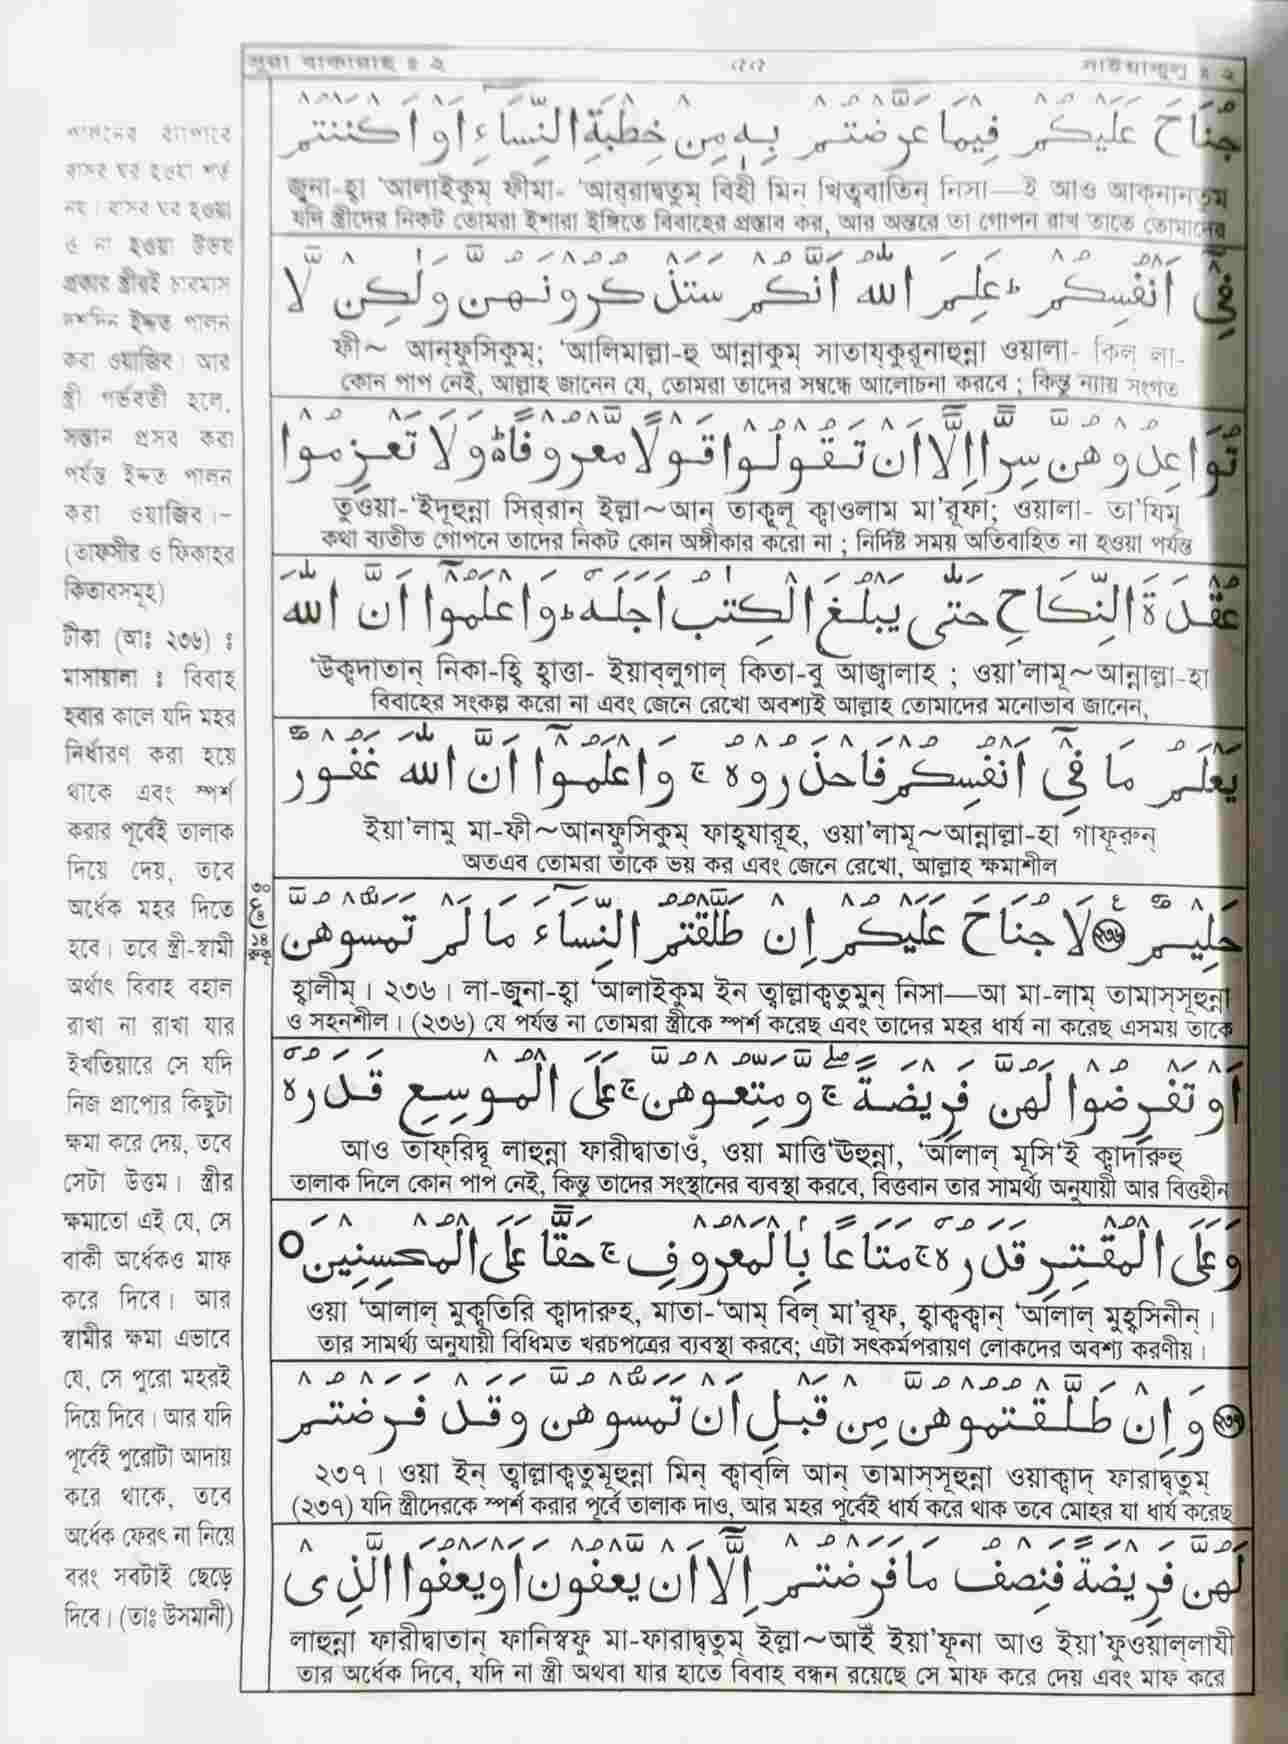 সূরা বাকারাহ ঃ ২
জুনা-হ়া 'আলাইকুম্ ফীমা- 'আর্‌রাদ্ব্‌তুম্ বিহী মিন্ খিত়্‌বাতিন্ নিসা—ই আও আক্‌নান্‌তুম্
جُنَاحَ عَلَيْكُمْ فِيمَا عَرَّضْتُمْ بِهٖ مِنْ خِطْبَةِ النِّسَاءِ أَوْ أَكْنَنْتُمْ
যদি স্ত্রীদের নিকট তোমরা ইশারা ইঙ্গিতে বিবাহের প্রস্তাব কর, আর অন্তরে তা গোপন রাখ তাতে তোমাদের
فِيْ أَنْفُسِكُمْ ط عَلِمَ اللّٰهُ أَنَّكُمْ سَتَذْكُرُونَهُنَّ وَلٰكِنْ لَّا
ফী~ আন্‌ফুসিকুম্; 'আলিমাল্লা-হু আন্নাকুম্ সাতায্‌কুরূনাহুন্না ওয়ালা- কিল্ লা-
কোন পাপ নেই, আল্লাহ জানেন যে, তোমরা তাদের সম্বন্ধে আলোচনা করবে ; কিন্তু ন্যায় সংগত
تُوَاعِدُوهُنَّ سِرًّا إِلَّا أَنْ تَقُولُوا قَوْلًا مَّعْرُوفًا ط وَلَا تَعْزِمُوا
তুওয়া-'ইদূহুন্না সির্‌রান্ ইল্লা~আন্ তাকূলূ ক্বাওলাম মা'রূফা; ওয়ালা- তা'যিমূ
কথা ব্যতীত গোপনে তাদের নিকট কোন অঙ্গীকার করো না ; নির্দিষ্ট সময় অতিবাহিত না হওয়া পর্যন্ত
عُقْدَةَ النِّكَاحِ حَتّٰى يَبْلُغَ الْكِتٰبُ أَجَلَهٗ ط وَاعْلَمُوا أَنَّ اللّٰهَ
'উক্বদাতান্ নিকা-হ়ি হ়াত্তা- ইয়াব্‌লুগাল্ কিতা-বু আজ্বালাহ ; ওয়া'লামূ~আন্নাল্লা-হা
বিবাহের সংকল্প করো না এবং জেনে রেখো অবশ্যই আল্লাহ তোমাদের মনোভাব জানেন,
يَعْلَمُ مَا فِيْ أَنْفُسِكُمْ فَاحْذَرُوهُ ج وَاعْلَمُوا أَنَّ اللّٰهَ غَفُورٌ
ইয়া'লামু মা-ফী~আনফুসিকুম্ ফাহ়্‌যারূহ, ওয়া'লামূ~আন্নাল্লা-হা গাফূরুন্
অতএব তোমরা তাঁকে ভয় কর এবং জেনে রেখো, আল্লাহ ক্ষমাশীল
৩০
ع
১৪
রুকু
حَلِيمٌ ২৩৬ لَا جُنَاحَ عَلَيْكُمْ إِنْ طَلَّقْتُمُ النِّسَاءَ مَا لَمْ تَمَسُّوهُنَّ
হ়ালীম্। ২৩৬। লা-জুনা-হ়া 'আলাইকুম ইন ত়্বাল্লাক্বতুমুন্ নিসা—আ মা-লাম্ তামাস্‌সূহুন্না
ও সহনশীল। (২৩৬) যে পর্যন্ত না তোমরা স্ত্রীকে স্পর্শ করেছ এবং তাদের মহর ধার্য না করেছ এসময় তাকে
أَوْ تَفْرِضُوا لَهُنَّ فَرِيضَةً ج وَمَتِّعُوهُنَّ ج عَلَى الْمُوسِعِ قَدَرُهٗ
আও তাফ্‌রিদ্বূ লাহুন্না ফারীদ্বাতাওঁ, ওয়া মাত্তি'ঊহুন্না, 'আলাল্ মূসি'ই ক্বাদারুহু
তালাক দিলে কোন পাপ নেই, কিন্তু তাদের সংস্থানের ব্যবস্থা করবে, বিত্তবান তার সামর্থ্য অনুযায়ী আর বিত্তহীন
وَعَلَى الْمُقْتِرِ قَدَرُهٗ ج مَتَاعًا بِالْمَعْرُوفِ ج حَقًّا عَلَى الْمُحْسِنِينَ O
ওয়া 'আলাল্ মুক্ব্‌তিরি ক্বাদারুহ, মাতা-'আম্ বিল্ মা'রূফ, হ়াক্বক্বান্ 'আলাল্ মুহ়্‌সিনীন্।
তার সামর্থ্য অনুযায়ী বিধিমত খরচপত্রের ব্যবস্থা করবে; এটা সৎকর্মপরায়ণ লোকদের অবশ্য করণীয়।
২৩৭ وَإِنْ طَلَّقْتُمُوهُنَّ مِنْ قَبْلِ أَنْ تَمَسُّوهُنَّ وَقَدْ فَرَضْتُمْ
২৩৭। ওয়া ইন্ ত়্বাল্লাক্বতুমূহুন্না মিন্ ক্বাব্‌লি আন্ তামাস্‌সূহুন্না ওয়াক্বাদ্ ফারাদ্ব্‌তুম্
(২৩৭) যদি স্ত্রীদেরকে স্পর্শ করার পূর্বে তালাক দাও, আর মহর পূর্বেই ধার্য করে থাক তবে মোহর যা ধার্য করেছ
لَهُنَّ فَرِيضَةً فَنِصْفُ مَا فَرَضْتُمْ إِلَّا أَنْ يَعْفُونَ أَوْ يَعْفُوَا الَّذِى
লাহুন্না ফারীদ্বাতান্ ফানিস্বফু মা-ফারাদ্ব্‌তুম্ ইল্লা~আইঁ ইয়া'ফূনা আও ইয়া'ফুওয়াল্‌লাযী
তার অর্ধেক দিবে, যদি না স্ত্রী অথবা যার হাতে বিবাহ বন্ধন রয়েছে সে মাফ করে দেয় এবং মাফ করে
পালনের ব্যাপারে
বাসর ঘর হওয়া শর্ত
নয়। বাসর ঘর হওয়া
ও না হওয়া উভয়
প্রকার স্ত্রীরই চারমাস
দশদিন ইদ্দত পালন
করা ওয়াজিব। আর
স্ত্রী গর্ভবতী হলে,
সন্তান প্রসব করা
পর্যন্ত ইদ্দত পালন
করা ওয়াজিব।–
(তাফসীর ও ফিকাহর
কিতাবসমূহ)
টীকা (আঃ ২৩৬) ঃ
মাসায়ালা ঃ বিবাহ
হবার কালে যদি মহর
নির্ধারণ করা হয়ে
থাকে এবং স্পর্শ
করার পূর্বেই তালাক
দিয়ে দেয়, তবে
অর্ধেক মহর দিতে
হবে। তবে স্ত্রী-স্বামী
অর্থাৎ বিবাহ বহাল
রাখা না রাখা যার
ইখতিয়ারে সে যদি
নিজ প্রাপ্যের কিছুটা
ক্ষমা করে দেয়, তবে
সেটা উত্তম। স্ত্রীর
ক্ষমাতো এই যে, সে
বাকী অর্ধেকও মাফ
করে দিবে। আর
স্বামীর ক্ষমা এভাবে
যে, সে পুরো মহরই
দিয়ে দিবে। আর যদি
পূর্বেই পুরোটা আদায়
করে থাকে, তবে
অর্ধেক ফেরৎ না নিয়ে
বরং সবটাই ছেড়ে
দিবে। (তাঃ উসমানী)